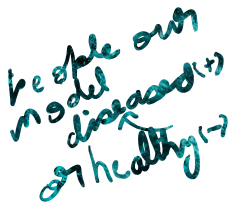 people our
model
diseased(+)
or healthy(-)